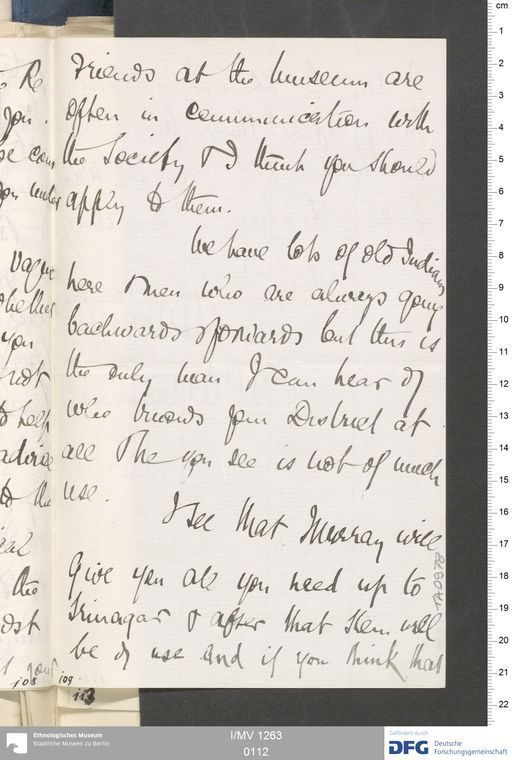 Friends at the Museum are
often in communication with
the Society & I think you should
apply to them.
We have lots of old Indians
here & men who are always going
backwards & forwards but this is
the only man I can hear of
who knows your District at
all & he you see is not of much
use.
I see that Murray will
Give you all you need up to
Srinagar & after that Stein will
be of use and if you think that
to Re
you.
be com
you under
Vague
whether
you
not
to help
advise
to the
the
108 109
113
1A0978
cm
1
2
3
4
5
6
7
8
9
10
11
12
13
14
15
16
17
18
19
20
21
22
Ethnologisches Museum
Staatliche Museen zu Berlin
I/MV 1263
0112
Gefördert durch
DFG Deutsche
Forschungsgemeinschaft